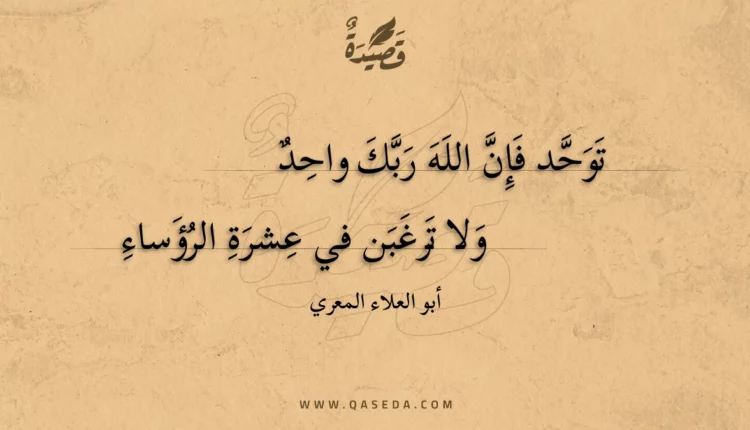 قَصِيدَةٌ
تَوَحَّد فَإِنَّ اللَهَ رَبَّكَ واحِدٌ
وَلا تَرغَبَن في عِشرَةِ الرُؤَساءِ
أبو العلاء المعري
WWW.QASEDA.COM